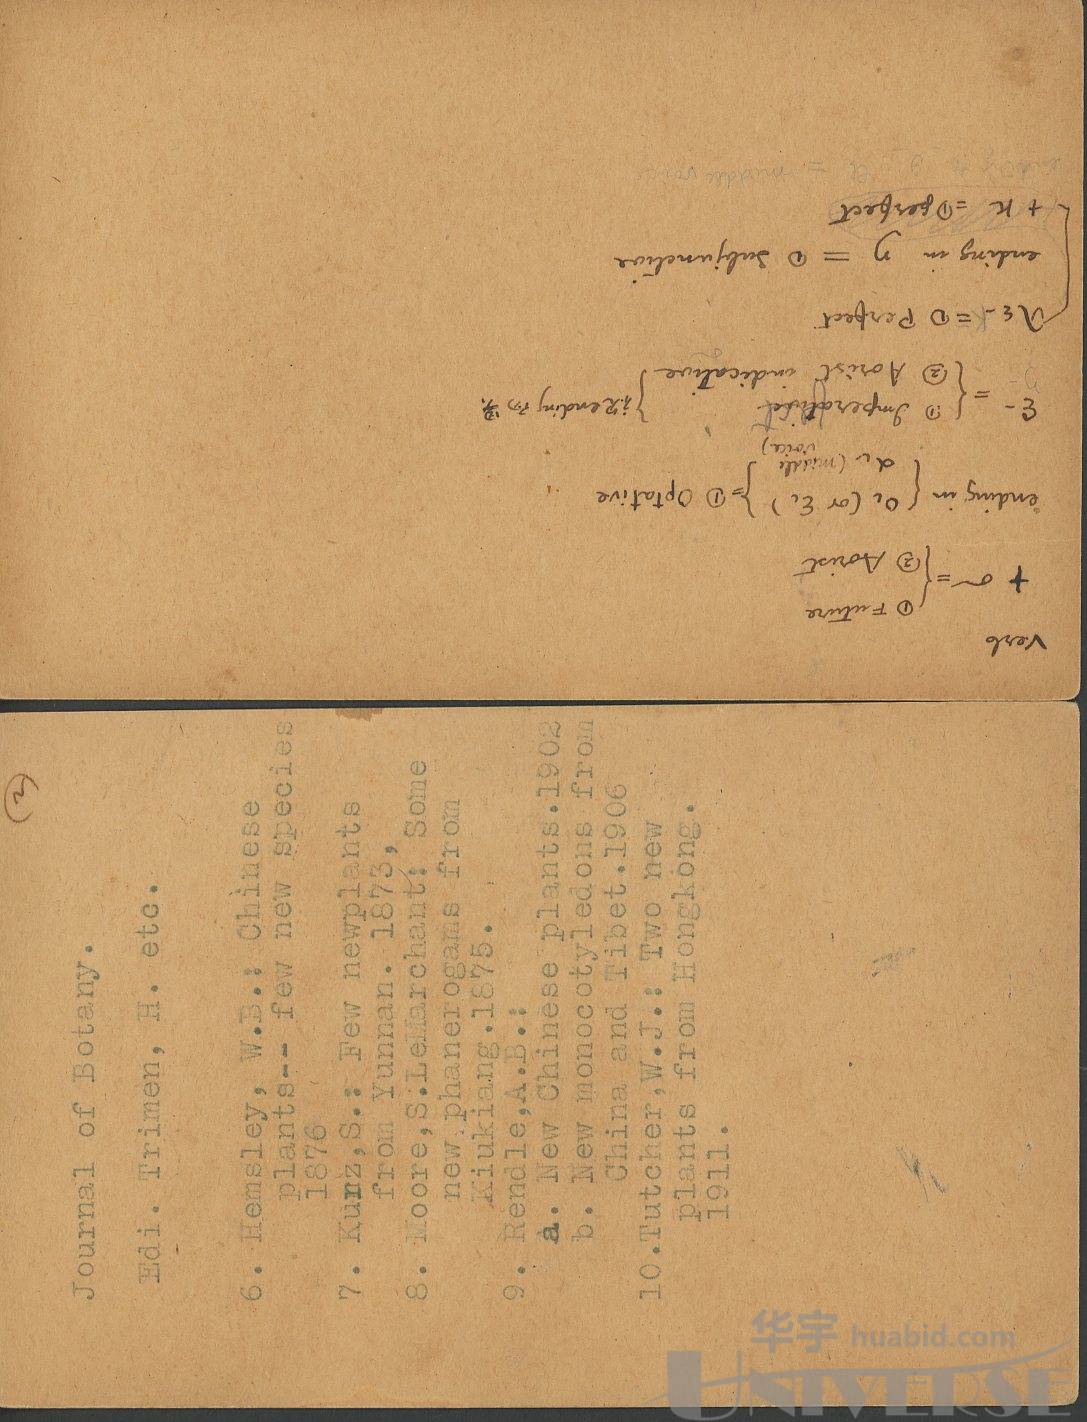 Verb
+ σ = { ① Future
② Aorist
ending in { οι (or ει) } = ① Optative
αι (middle voice)
ε- = { ① Imperfect } ending in
② Aorist indicative
λε-κ = ① Perfect
ending in η = ① Subjunctive
+ κ = ① perfect
= middle voice
(2)
Journal of Botany.
Edi. Trimen, H. etc.
6. Hemsley, W.B.: Chinese
plants-- few new species
1876
7. Kurz,S.: Few newplants
from Yunnan. 1873,
8. Moore,S.LeMarchant: Some
new phanerogams from
Kiukiang.1875.
9. Rendle,A.B.:
a. New Chinese plants.1902
b. New monocotyledons from
China and Tibet.1906
10.Tutcher,W.J.: Two new
plants from Hongkong.
1911.
华宇 huabid.com
UNIVERSE